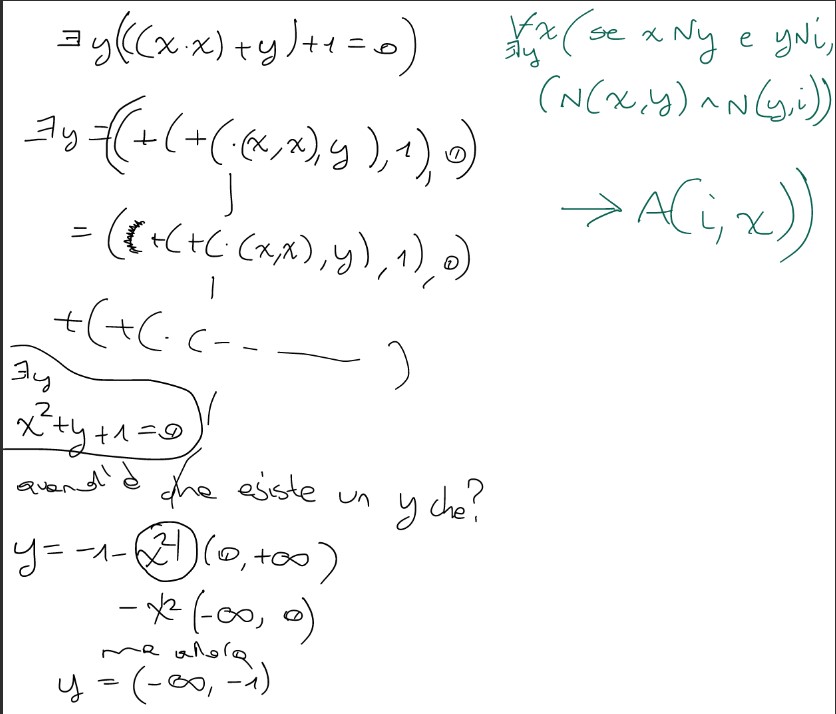 ∃y(((x·x)+y)+1=0)
∃y=(+(+(·(x,x),y),1),0)
=(+(+(·(x,x),y),1),0)
+(+(·(-- ——)
∃y
x²+y+1=0
quand'è che esiste un y che?
y=-1-x² (0,+∞)
-x² (-∞, 0)
ma allora
y = (-∞, -1)
∀x ( se x N y e y N i,
∃y
(N(x,y) ∧ N(y,i))
→ A(i,x))